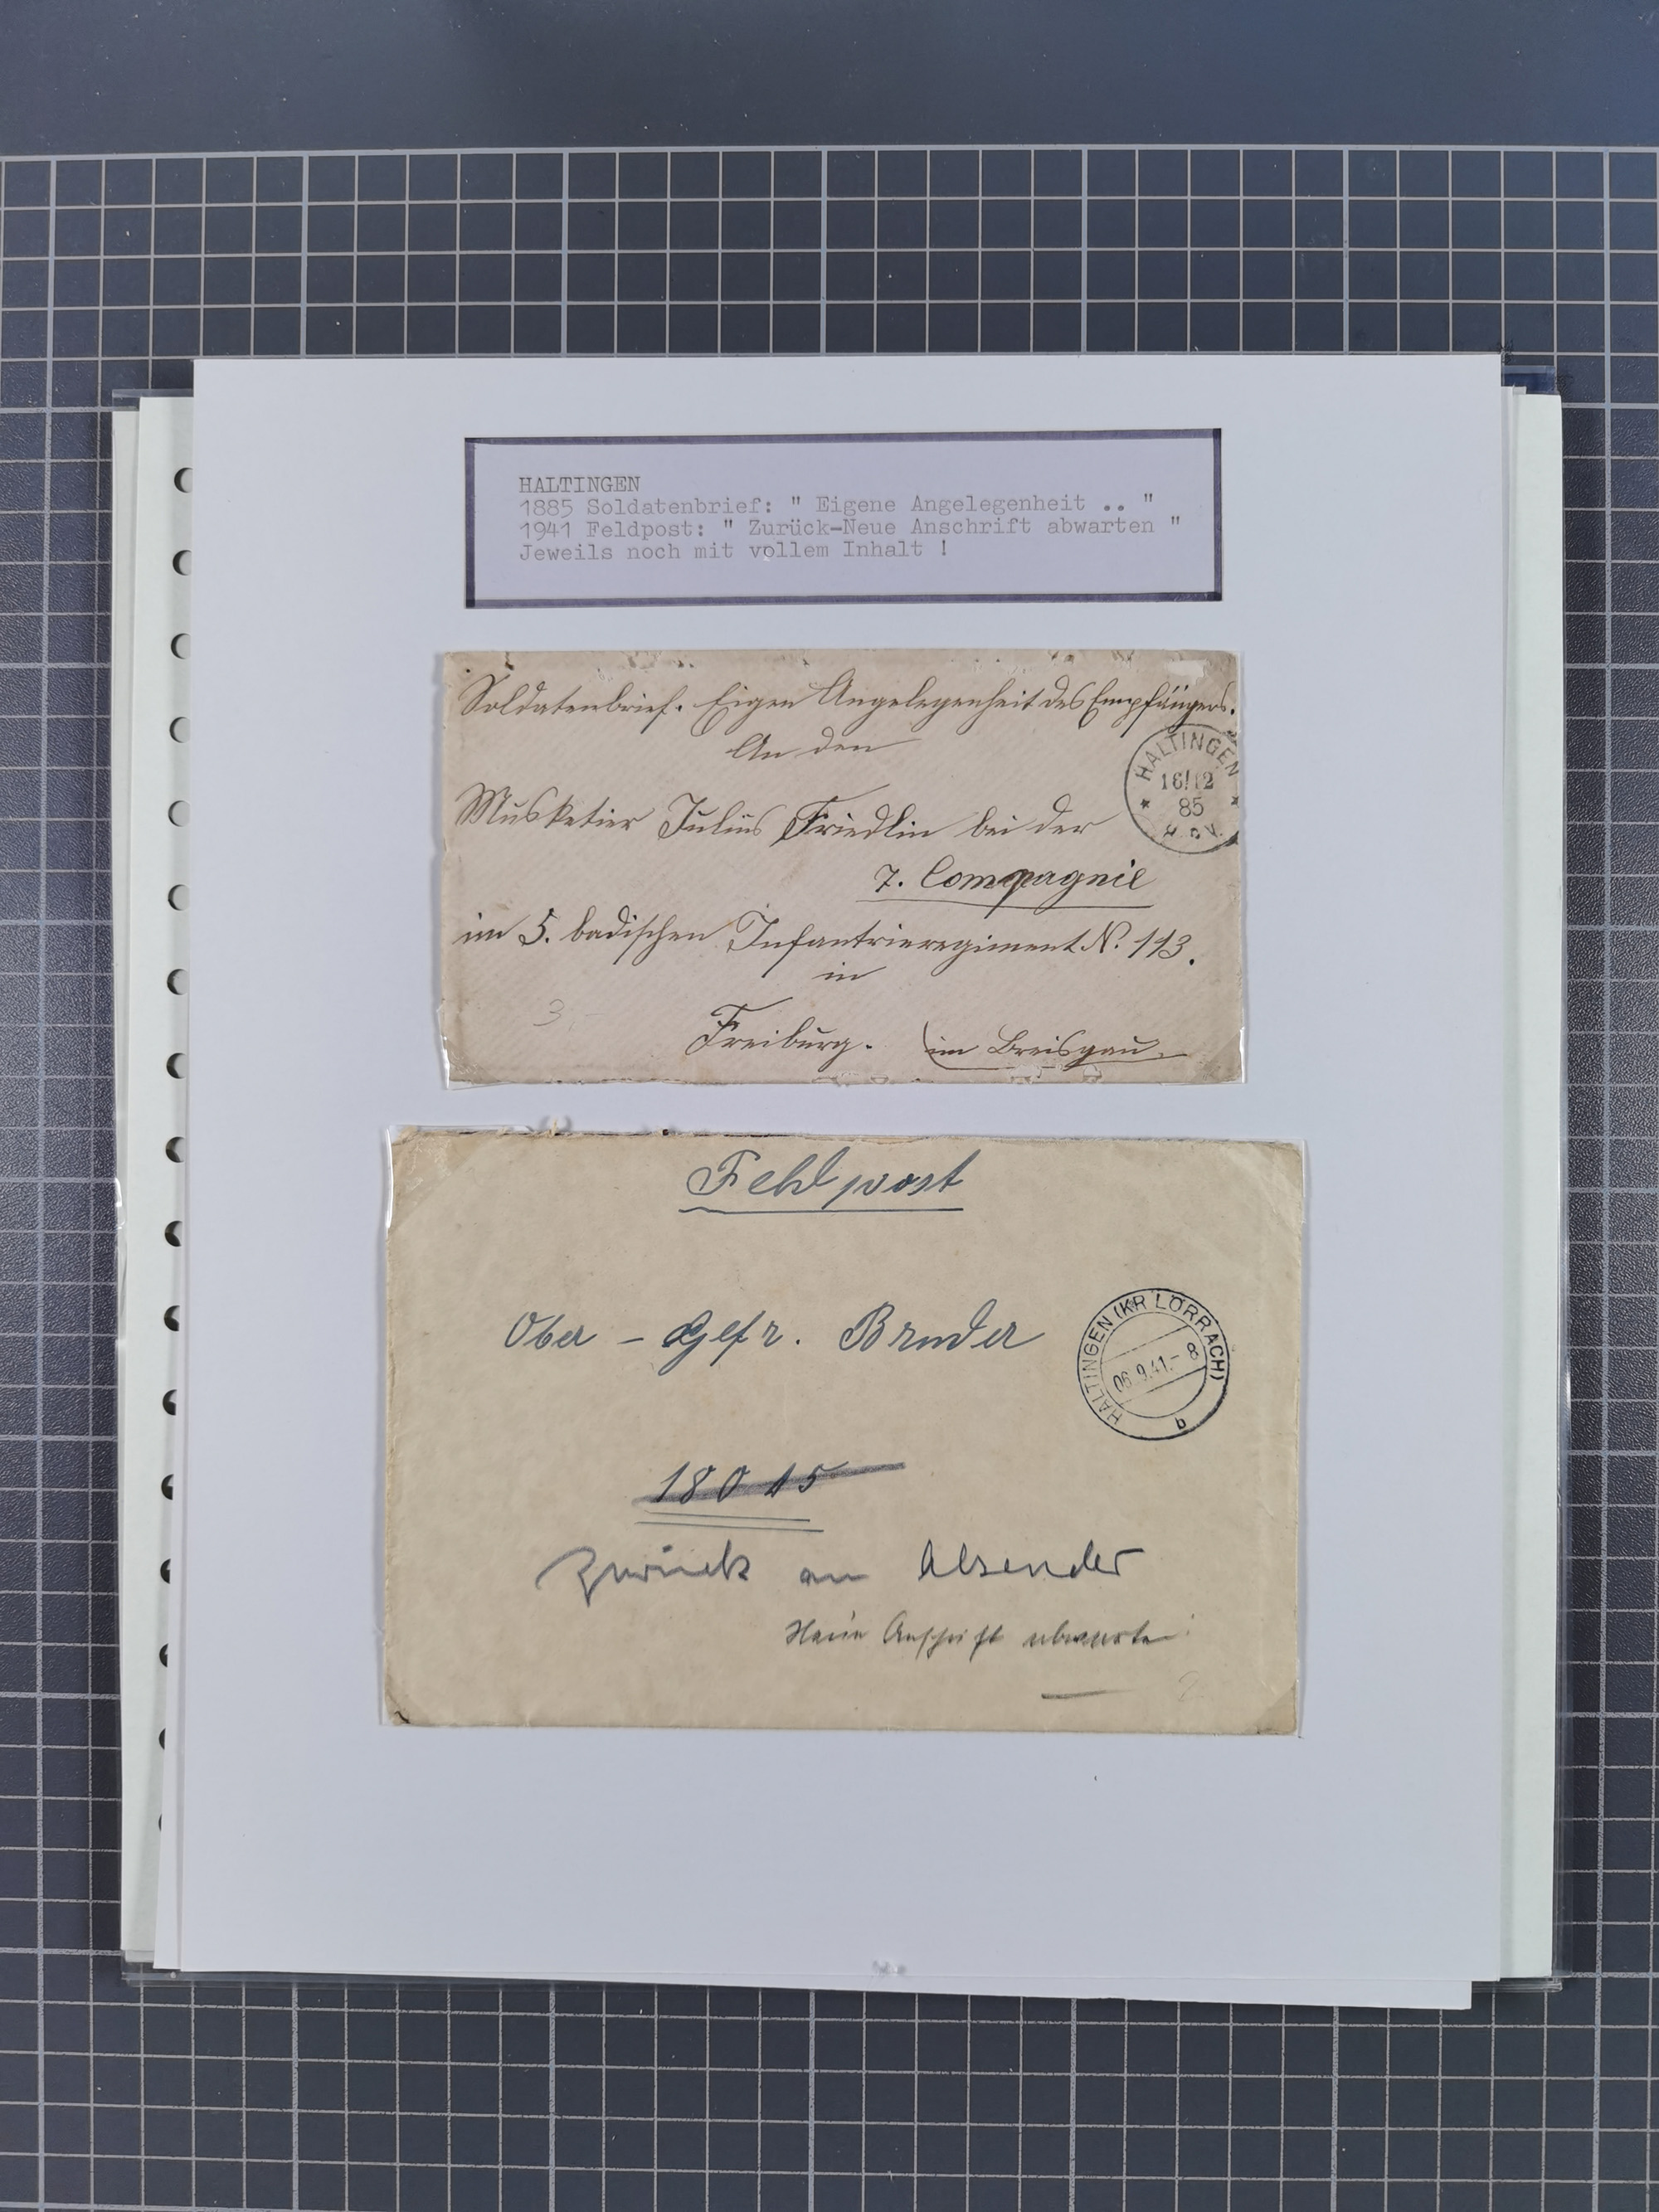 HALTINGEN
1885 Soldatenbrief: " Eigene Angelegenheit .. "
1941 Feldpost: " Zurück-Neue Anschrift abwarten "
Jeweils noch mit vollem Inhalt !
Soldatenbrief. Eigen Angelegenheit des Empfängers.
An den
HALTINGEN
16/12
85
Musketier Julius Friedlin bei der
7. Compagnie
im 5. badischen Infantrieregiment N. 113.
in
3,-
Freiburg. im Breisgau.
Feldpost
Ober - Gefr. Bruder
HALTINGEN (KR LÖRRACH)
06.9.41.- 8
b
18015
Zurück an Absender
Neue Anschrift abwarten